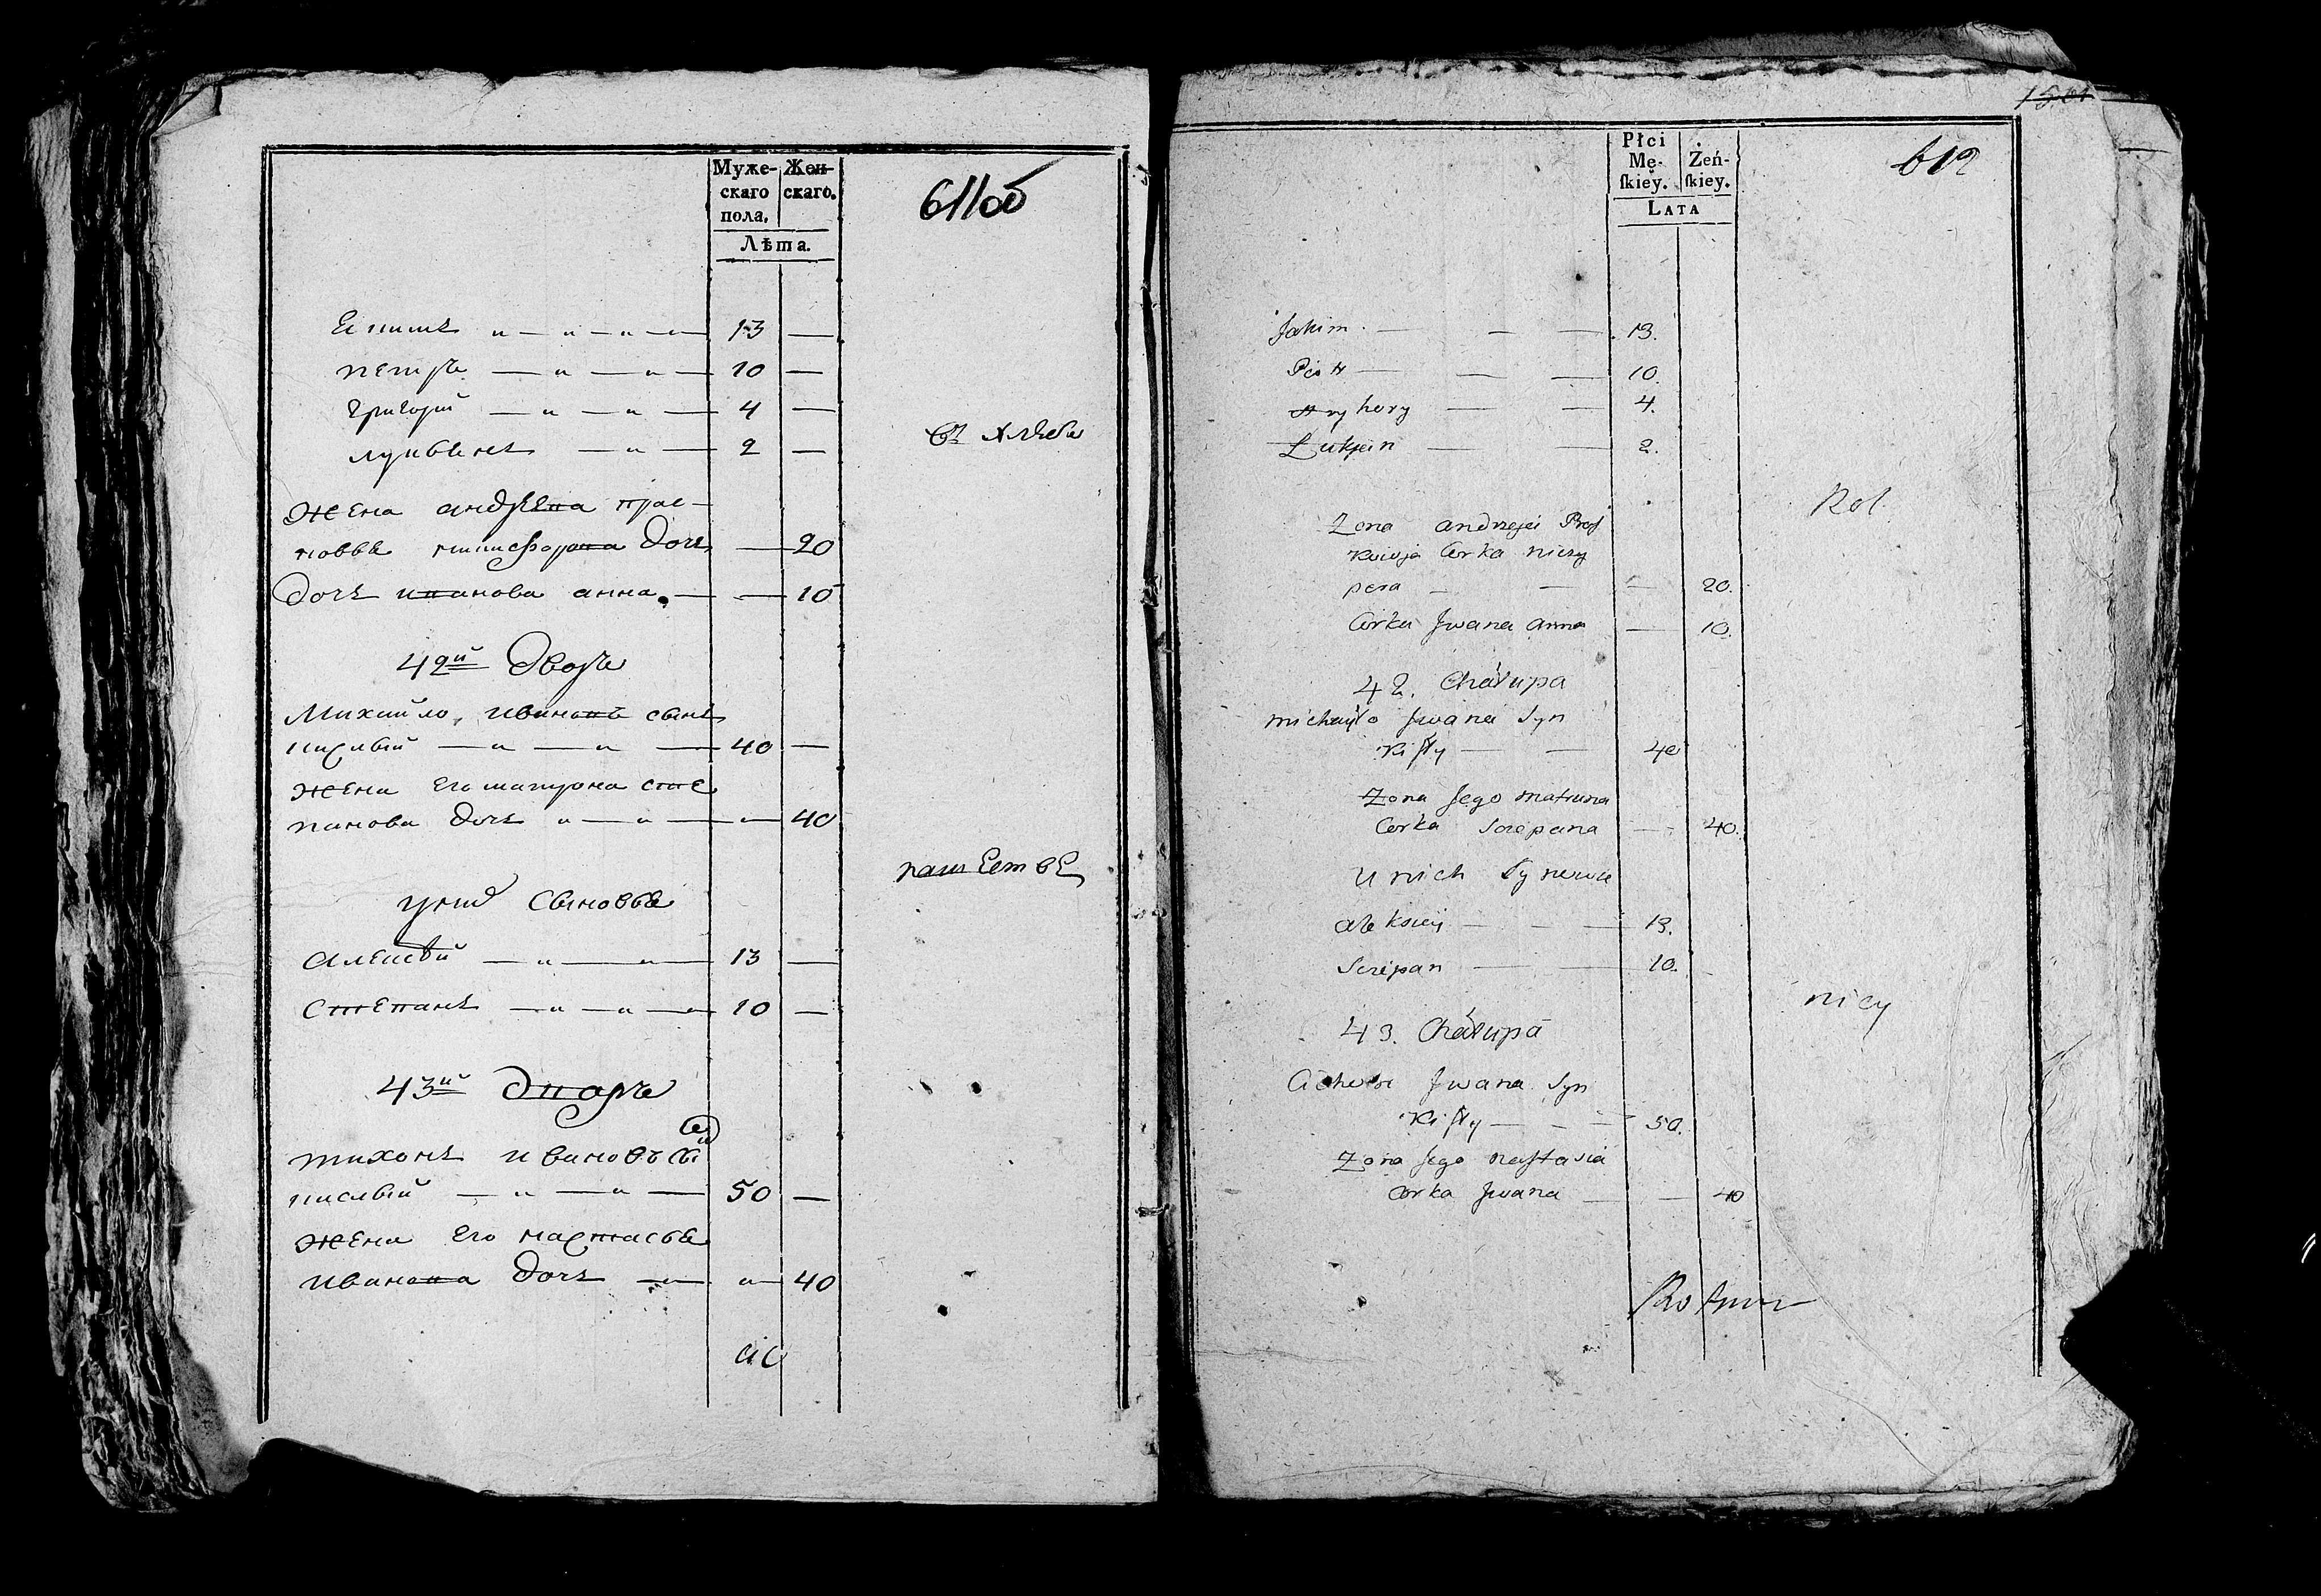 Муже-
скаго
пола,
Жен-
скаго.
Лѣта.
611об
Екимъ 13
петръ 10
григорій 4
лукьянъ 2
въ хлѣбо
жена андрѣева прас-
ковья никифорова дочь 20
дочь иванова анна 10
42й дворъ
Михайло, ивановъ сынъ
кислый 40
жена его матрона сте
панова дочь 40
пашествѣ
у них сыновья
алексѣй 13
степанъ 10
43й дворъ
тихонъ ивановъ сы
кислый 50
жена его настасья
иванова дочь 40
1501
Płci
Mę-
ſkiey.
Żeń-
ſkiey.
LATA
612
Jakim 13.
Piotr 10.
Hryhory 4.
Łukjan 2.
Rol
Zona andrzeja Pras
kowja Corka niczy
pora 20.
Corka Jwana anna 10.
42. Chałupa
michayło Jwana Syn
Kisły 40
Zona Jego matruna
Corka Sczepana 40.
U nich Synowie
alexiey 13.
Sczepan 10.
nicy
43. Chałupa
Cichon Jwana Syn
Kisły 50.
Zona Jego nastasia
Corka Jwana 40